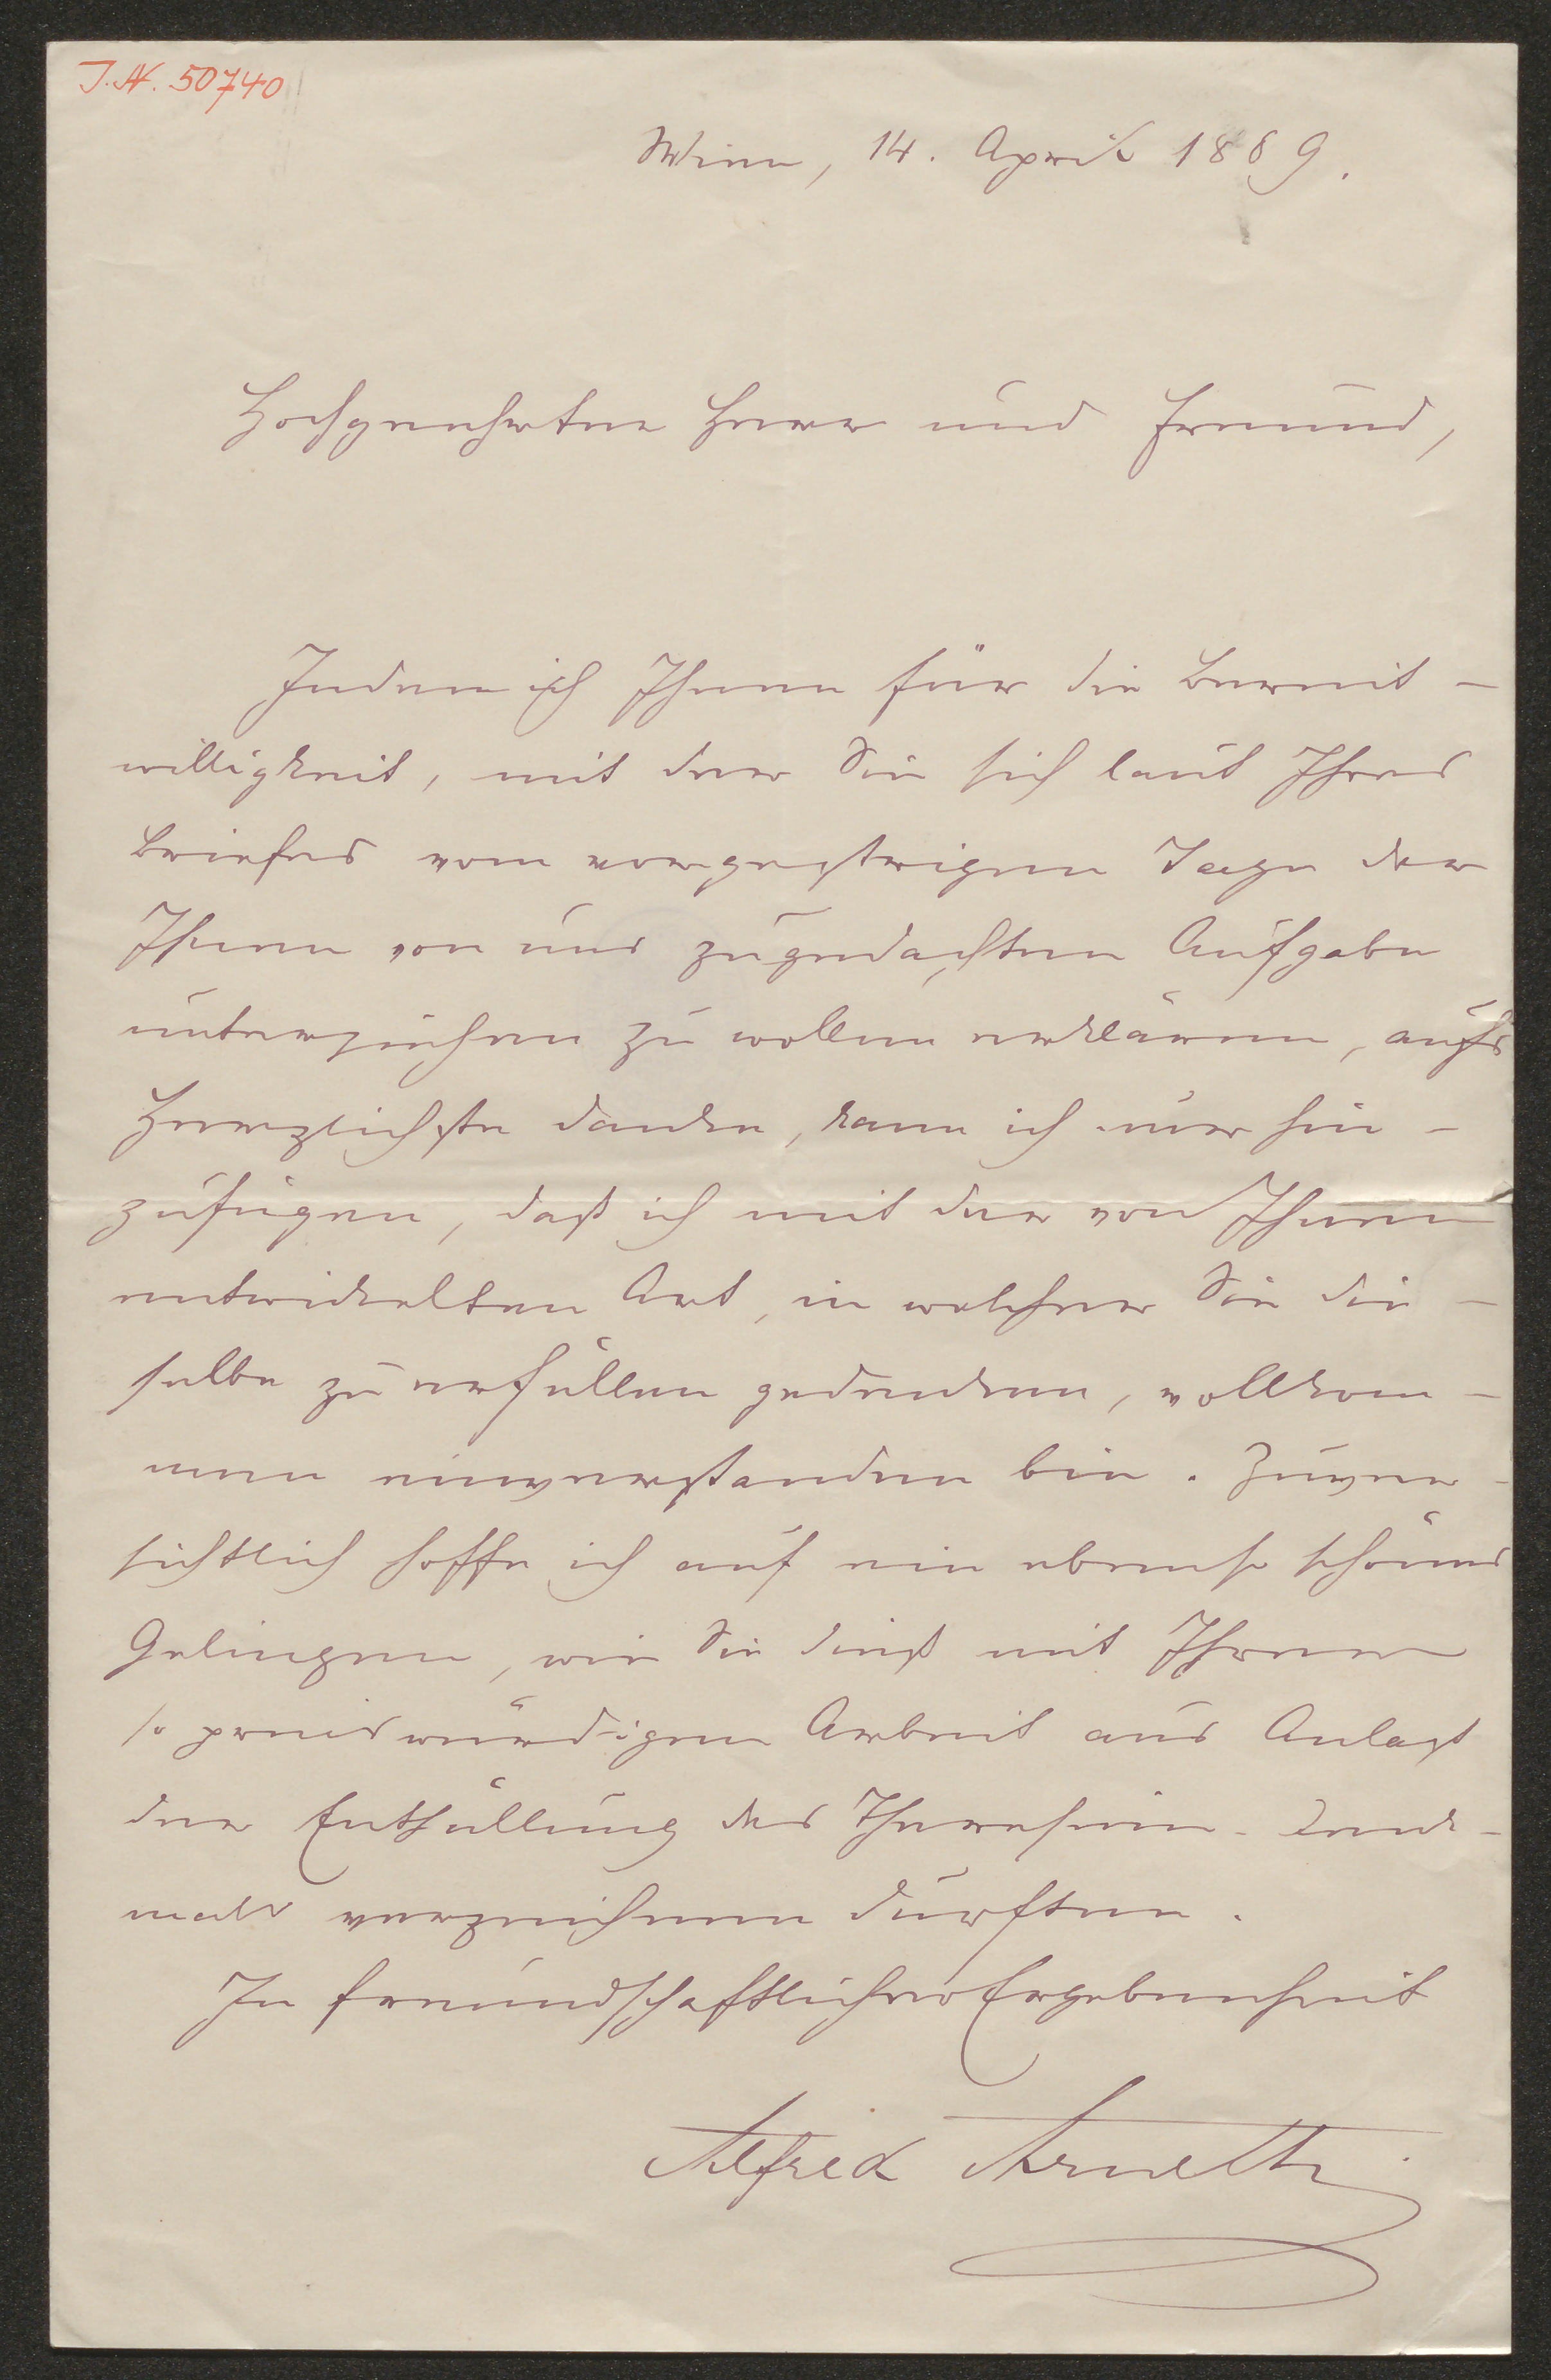 J. N. 50740
Wien, 14. April 1889.
Hochgeehrter Herr und Freund,
Indem ich Ihnen für die Bereit-
willigkeit, mit der Sie sich laut Ihres
Briefes vom vorgestrigen Tage der
Ihnen von uns zugedachten Aufgabe
unterziehen zu wollen erklären, aufs
Herzlichste danke, kann ich nur hin-
zufügen, daß ich mit der von Ihnen
entwickelten Art, in welcher Sie die-
selbe zu erfüllen gedenken, vollkom-
men einverstanden bin. Zuver-
sichtlich hoffe ich auf ein ebenso schönes
Gelingen, wie Sie dieß mit Ihrer
so preiswürdigen Arbeit aus Anlaß
der Enthüllung des Theresien-Denk-
mals verzeichnen durften.
In freundschaftlicher Ergebenheit
Alfred Arneth